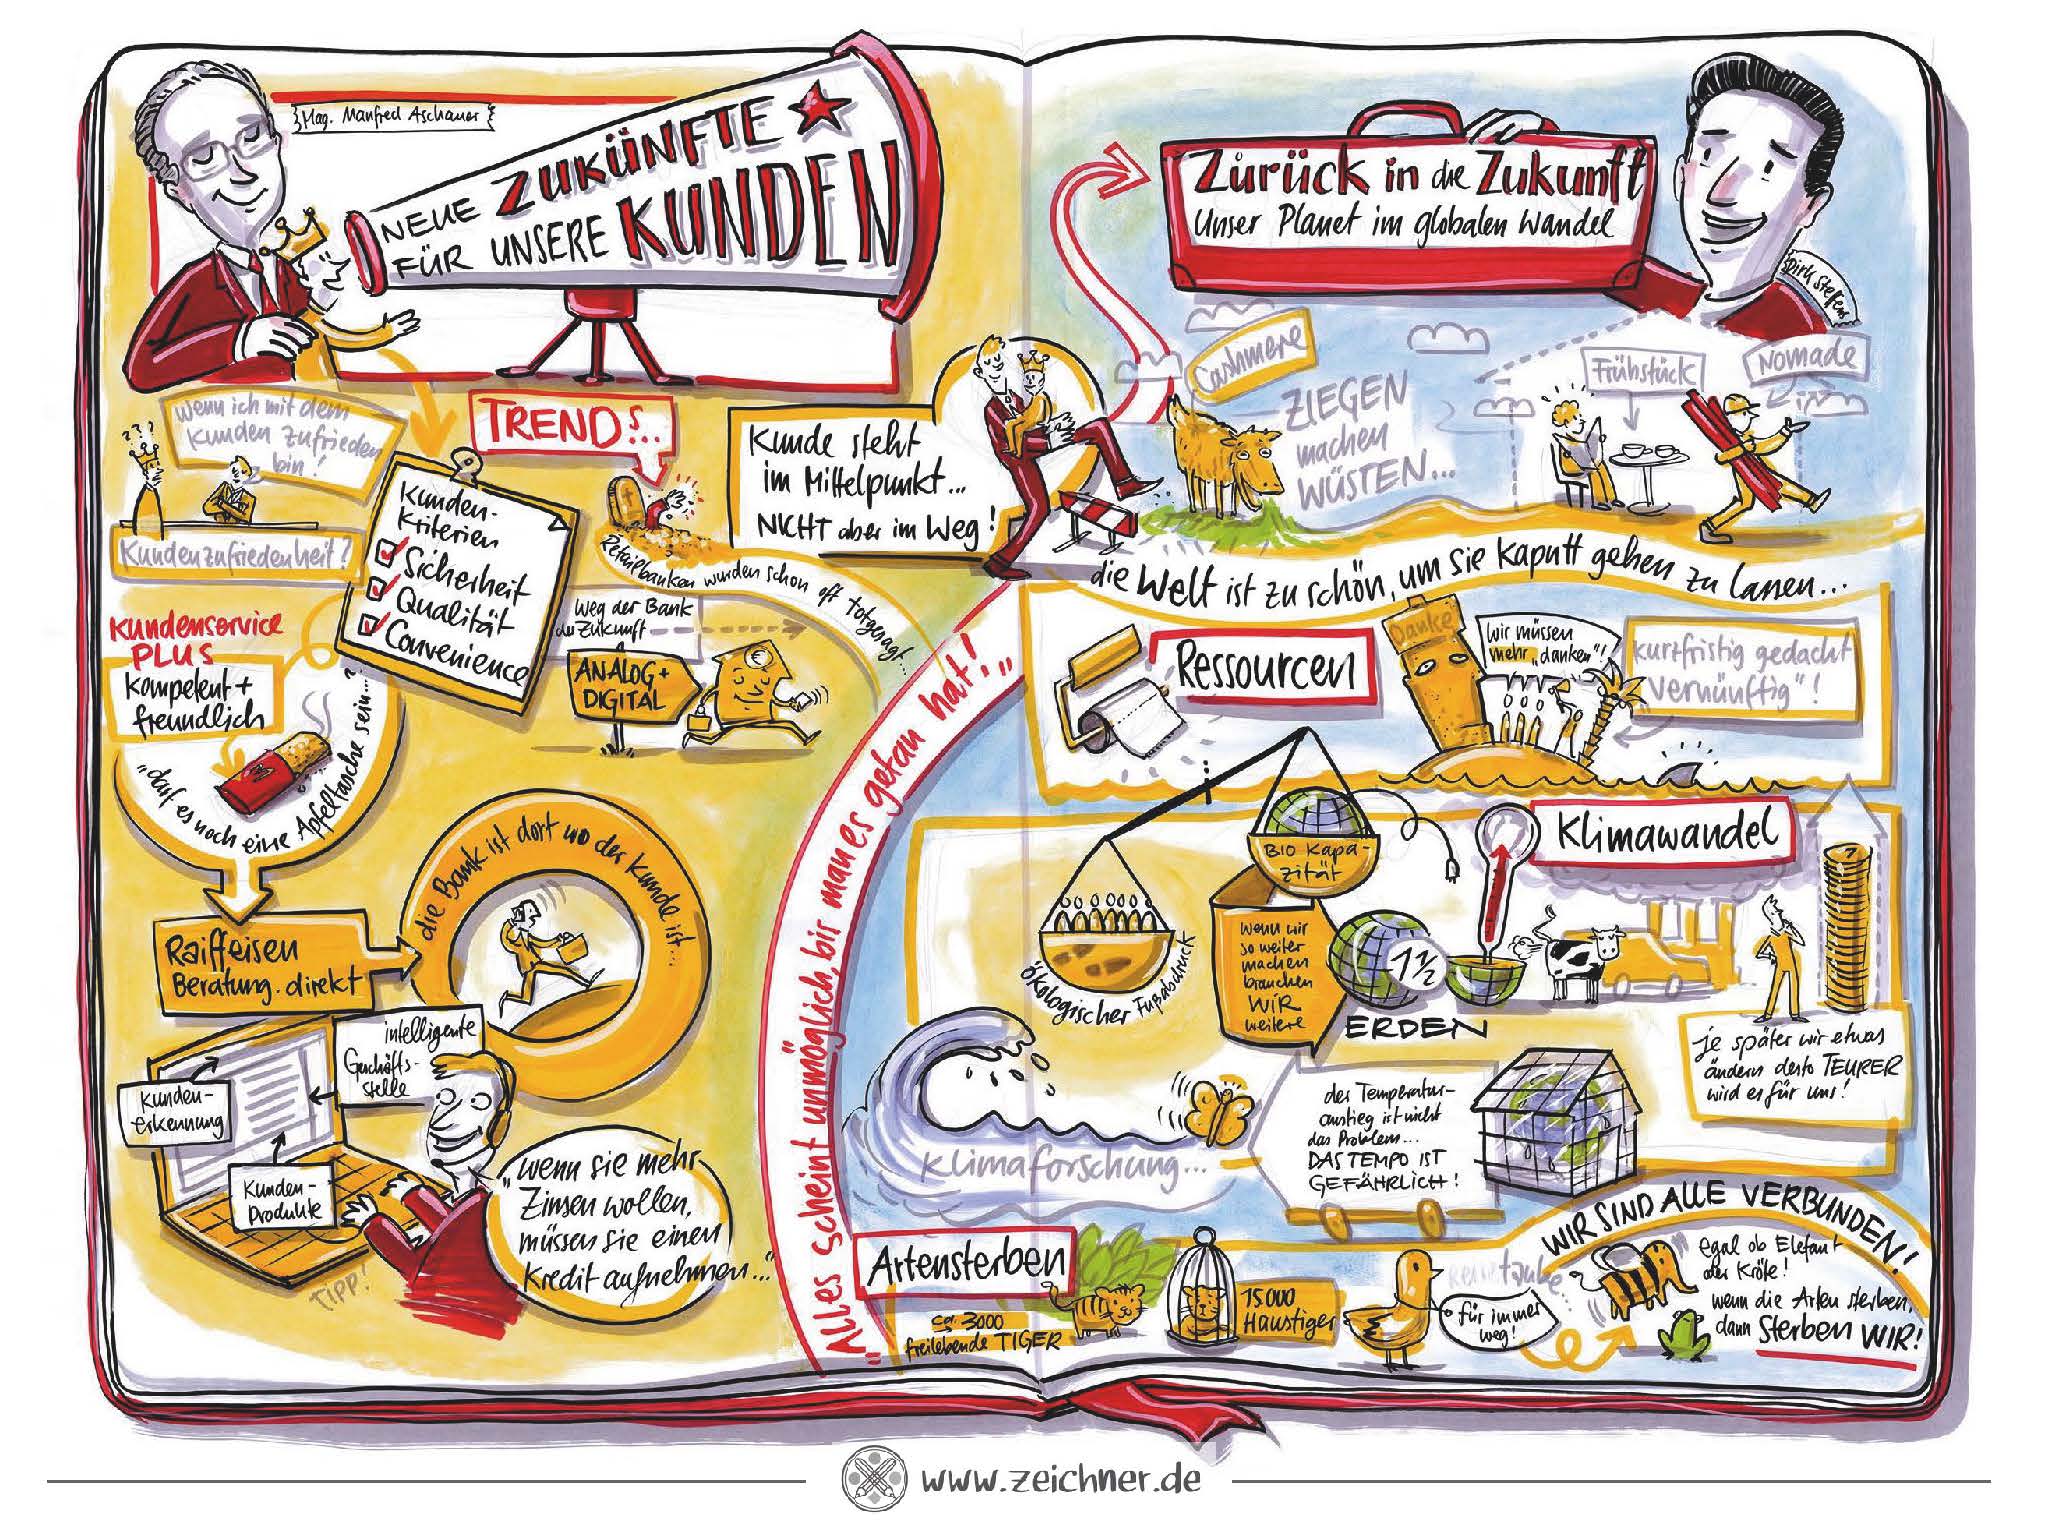 Mag. Manfred Aschauer
NEUE ZUKÜNFTE
FÜR UNSERE KUNDEN
wenn ich mit dem
Kunden zufrieden
bin!
Kundenzufriedenheit?
TREND
S...
Kunden-
Kriterien
Sicherheit
Qualität
Convenience
Retailbanken wurden schon oft totgesagt...
Kunde steht
im Mittelpunkt...
NICHT aber im Weg!
Weg der Bank
der Zukunft
ANALOG+
DIGITAL
Kundenservice
PLUS
kompetent +
freundlich
"darf es noch eine Apfeltasche sein...?
die Bank ist dort wo der Kunde ist...
Raiffeisen
Beratung.direkt
intelligente
Geschäfts-
stelle
Kunden-
erkennung
Kunden-
Produkte
TIPP!
"wenn sie mehr
Zinsen wollen,
müssen sie einen
Kredit aufnehmen..."
"Alles scheint unmöglich, bis man es getan hat!"
Zurück in die Zukunft
Unser Planet im globalen Wandel
Dirk Steffens
Cashmere
ZIEGEN
machen
WÜSTEN...
Frühstück
Nomade
die Welt ist zu schön, um sie kaputt gehen zu lassen...
Ressourcen
Danke
wir müssen
mehr "danken"!
kurzfristig gedacht
"vernünftig"!
Klimawandel
BIO Kapa-
zität
ökologischer Fußabdruck
wenn wir
so weiter
machen
brauchen
WIR
weitere
1 1/2
ERDEN
je später wir etwas
ändern desto TEURER
wird es für uns!
der Temperatur-
anstieg ist nicht
das Problem...
DAS TEMPO IST
GEFÄHRLICH!
Klimaforschung...
Artensterben
ca. 3000
freilebende TIGER
15000
Haustiger
taube
für immer
weg!
WIR SIND ALLE VERBUNDEN!
egal ob Elefant
oder Kröte!
wenn die Arten sterben,
dann sterben WIR!
www.zeichner.de